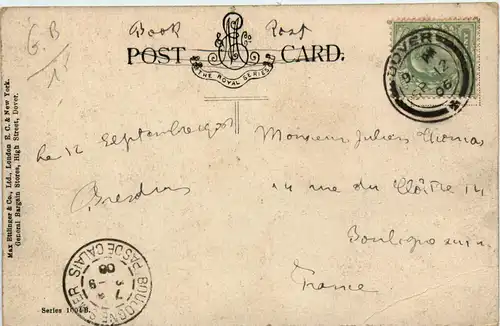 G.B
Book Post
POST CARD.
THE ROYAL SERIES
DOVER
12
06
Max Ettlinger & Co., Ltd., London E. C. & New York.
General Bargain Stores, High Street, Dover.
Le 12 Septembre
Monsieur Julien Thomas
14 rue du Cloître 14
Boulogne sur m
France
BOULOGNE
PAS DE CALAIS
Series